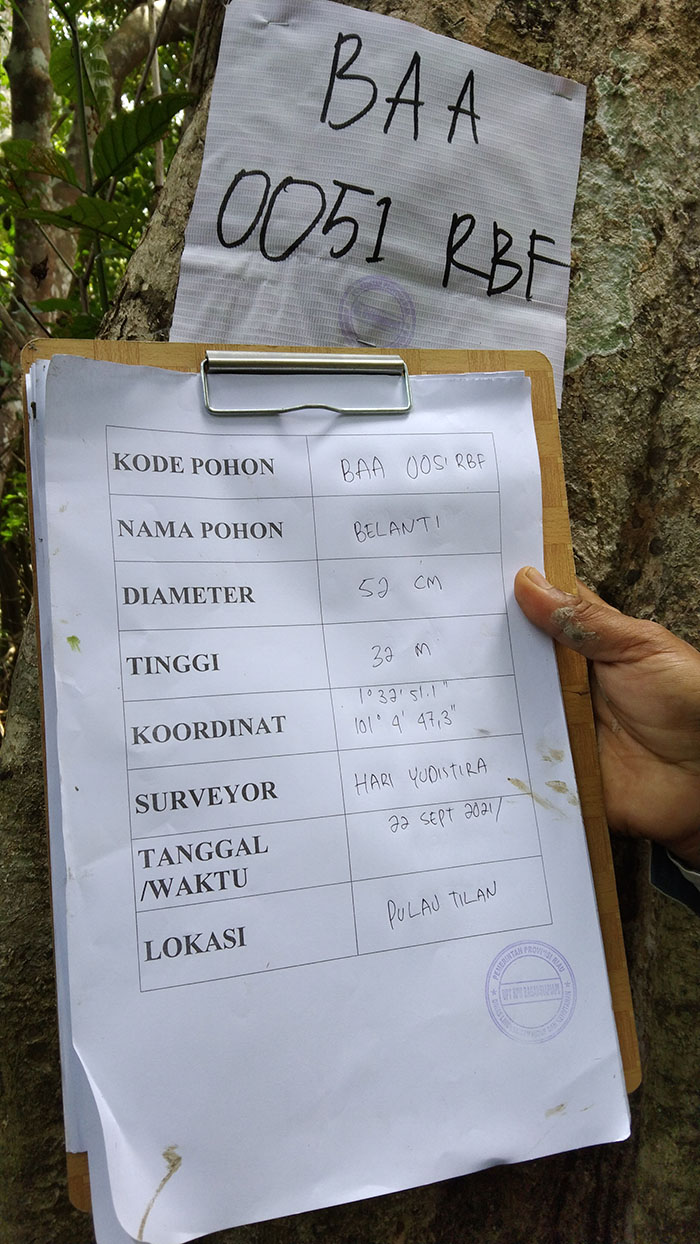 BAA
0051 RBF
KODE POHON BAA 0051 RBF
NAMA POHON BELANTI
DIAMETER 52 CM
TINGGI 32 M
KOORDINAT 1° 32' 51.1"
101° 4' 47,3"
SURVEYOR HARI YUDISTIRA
TANGGAL /WAKTU 22 SEPT 2021/
LOKASI PULAU TILAN
PEMERINTAH PROVINSI RIAU